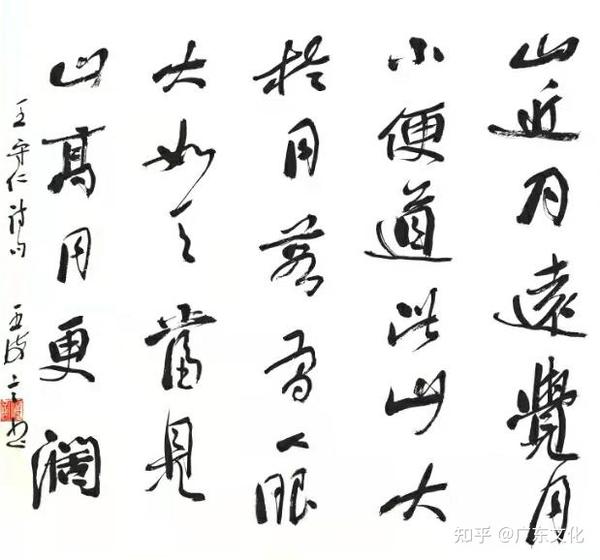 山近月遠覺月
小便道此山大
於月若有人眼
大如天當見
山高月更濶
王守仁诗句
知乎 @广东文化